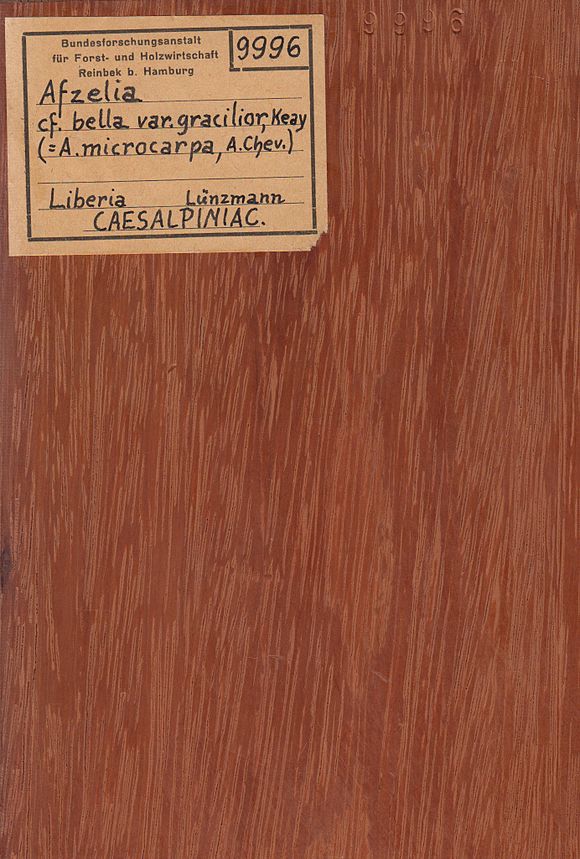 Bundesforschungsanstalt
für Forst- und Holzwirtschaft
Reinbek b. Hamburg
9996
Afzelia
cf. bella var. gracilior, Keay
(=A. microcarpa, A. Chev.)
Liberia Lünzmann
CAESALPINIAC.
9996